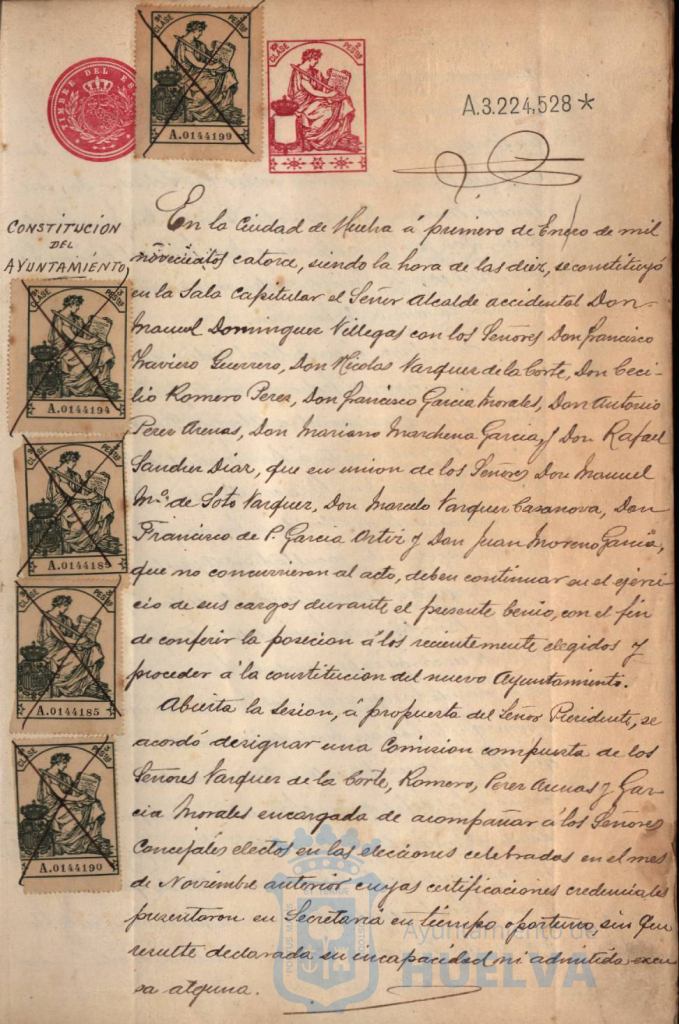 TIMBRE DEL ES
9ª CLASE 3 PESETAS
A.0144199
9ª CLASE 3 PESETAS
A.3.224,528 *
CONSTITUCIÓN
DEL
AYUNTAMIÉNTO
CLASE
A.0144194
CLASE
A.0144189
CLASE
A.0144185
CLASE
A.0144190
En la Ciudad de Huelva á primero de Enero de mil
novecientos catorce, siendo la hora de las diez, se constituyó
en la Sala Capitular el Señor Alcalde accidental Don
Manuel Dominguez Villegas con los Señores Don Francisco
Traviero Guerrero, Don Nicolas Vazquez de la Corte, Don Ceci-
lio Romero Perez, Don Francisco Garcia Morales, Don Antonio
Perez Arenas, Don Mariano Marchena Garcia y Don Rafael
Sanchez Diaz, que en union de los Señores Don Manuel
Mª. de Soto Vazquez, Don Marcelo Vazquez Casanova, Don
Francisco de P. Garcia Ortiz y Don Juan Moreno Garcia,
que no concurrieron al acto, deben continuar en el ejerci-
cio de sus cargos durante el presente benio, con el fin
de conferir la posecion á los recientemente elegidos y
proceder á la constitucion del nuevo Ayuntamiento.
Abierta la sesion, á propuesta del Señor Presidente, se
acordó designar una Comision compuesta de los
Señores Vazquez de la Corte, Romero, Perez Arenas y Gar-
cia Morales encargada de acompañar á los Señores
Concejales electos en las elecciones celebradas en el mes
de Noviembre anterior cuyas certificaciones credenciales
presentaron en Secretaria en tiempo oportuno sin que
resulte declarada su incapacidad ni admitida excu-
sa alguna.
Ayuntamiento de
HUELVA